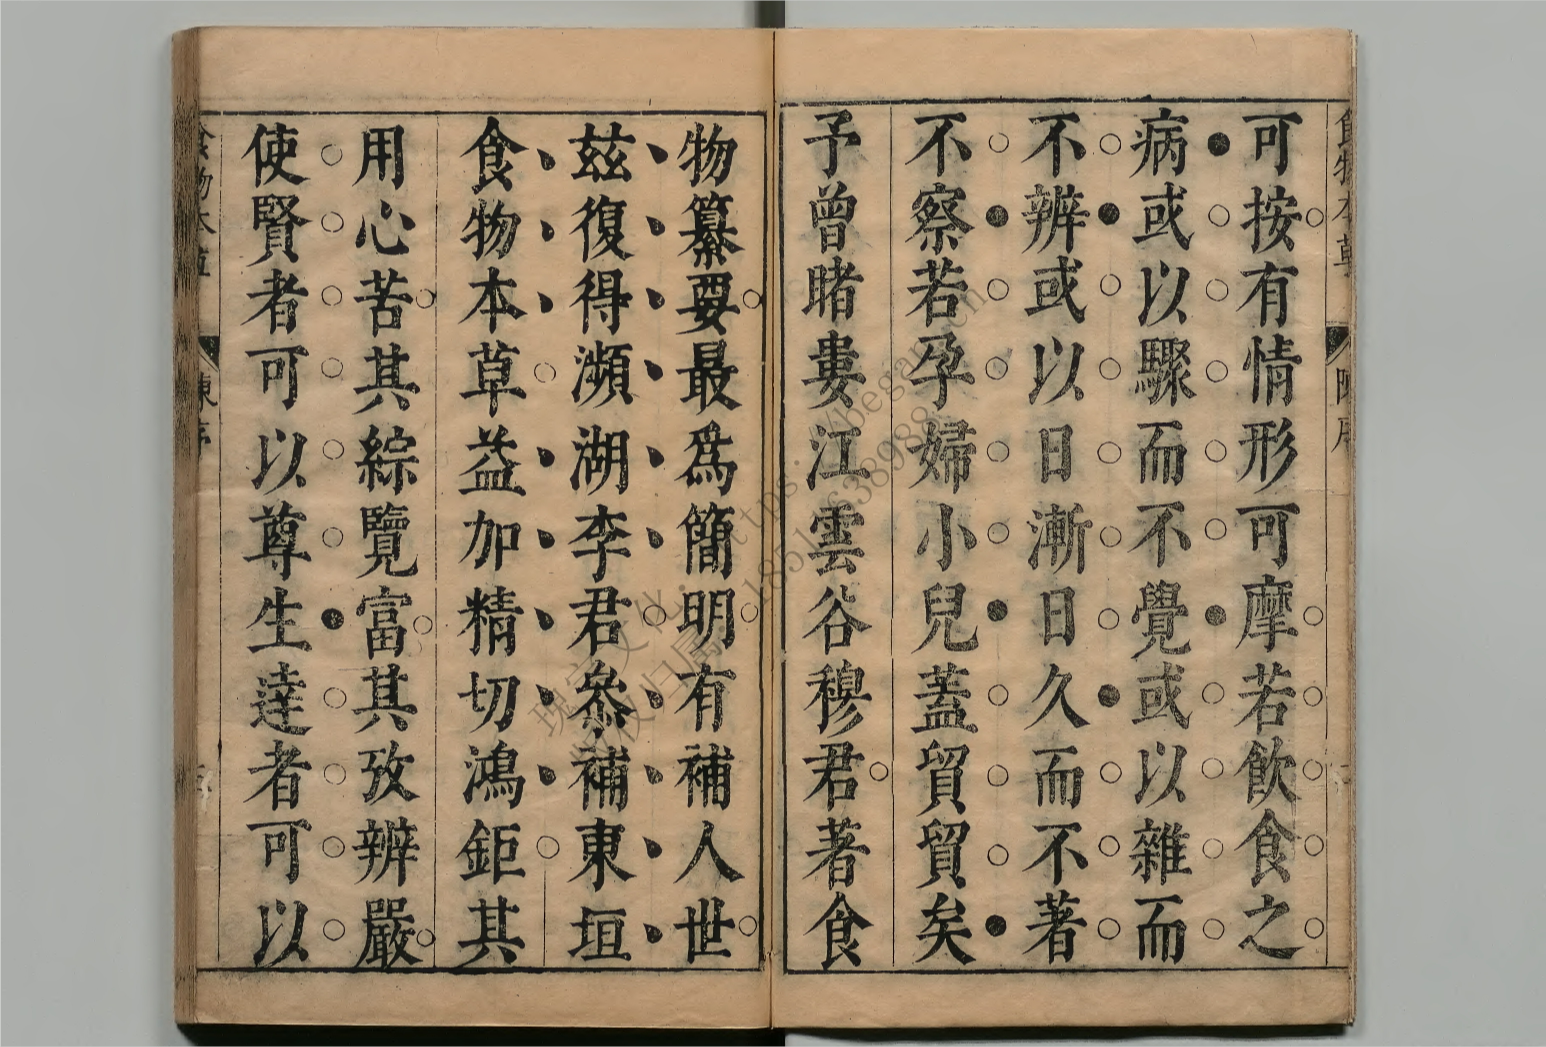 可按有情形可摩若飲食之
病或以驟而不覺或以雜而
不辨或以日漸日久而不著
不察若孕婦小兒蓋貿貿矣
予曾睹婁江雲谷穆君著食
物纂要最爲簡明有補人世
茲復得瀕湖李君叅補東垣
食物本草益加精切鴻鉅其
用心苦其綜覽富其攷辨嚴
使賢者可以尊生達者可以
食物本草
陳序